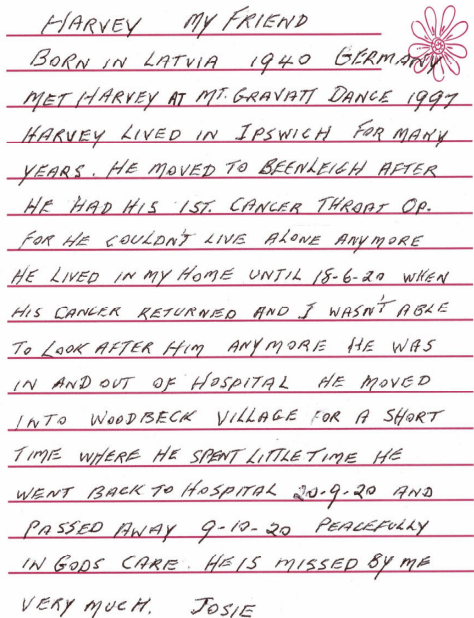 HARVEY MY FRIEND
BORN IN LATVIA 1940 GERMANY
MET HARVEY AT MT. GRAVATT DANCE 1997
HARVEY LIVED IN IPSWICH FOR MANY
YEARS. HE MOVED TO BEENLEIGH AFTER
HE HAD HIS 1ST. CANCER THROAT OP.
FOR HE COULDN'T LIVE ALONE ANYMORE
HE LIVED IN MY HOME UNTIL 18-6-20 WHEN
HIS CANCER RETURNED AND I WASN'T ABLE
TO LOOK AFTER HIM ANYMORE HE WAS
IN AND OUT OF HOSPITAL HE MOVED
INTO WOODBECK VILLAGE FOR A SHORT
TIME WHERE HE SPENT LITTLE TIME HE
WENT BACK TO HOSPITAL 20-9-20 AND
PASSED AWAY 9-10-20 PEACEFULLY
IN GODS CARE. HE IS MISSED BY ME
VERY MUCH. JOSIE